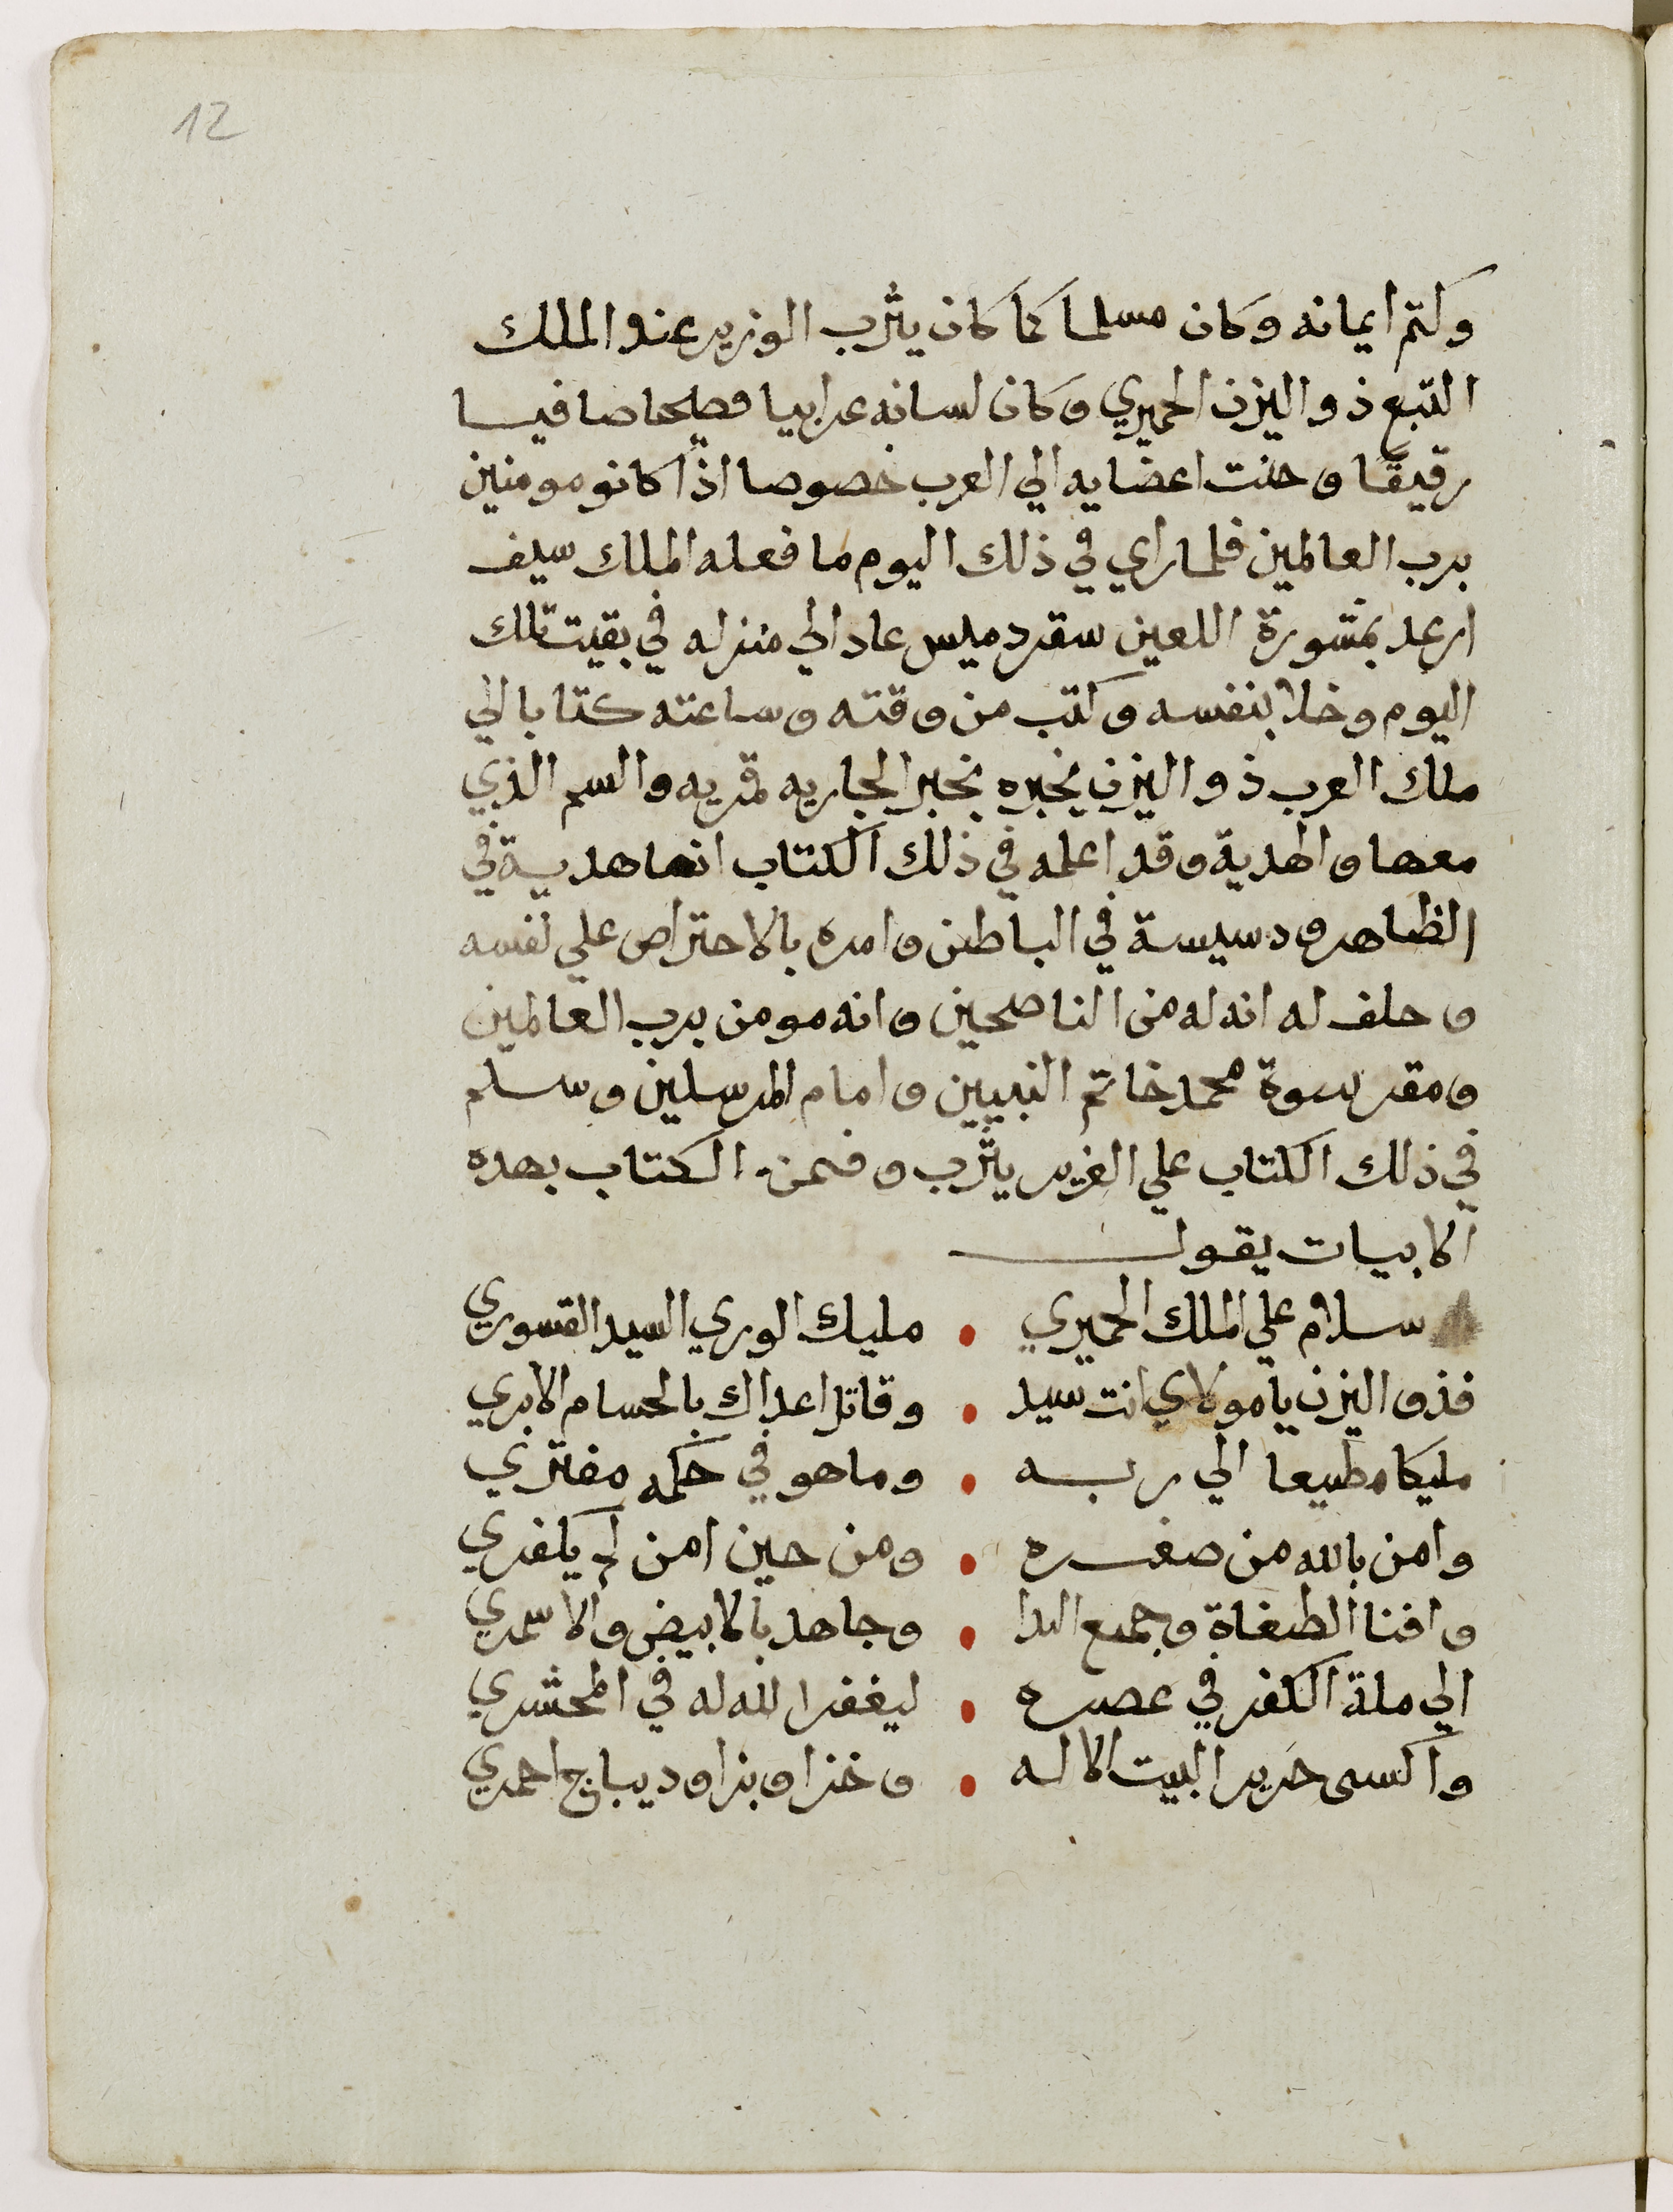 12
وكتم ايمانه وكان مسلما كما كان يثرب الوزير عند الملك
التبع ذو اليزن الحميري وكان لسانه عرابيا فصيحا صافيا
رقيقا وحنت اعضايه الي العرب خصوصا اذا كانو مومنين
برب العالمين فلما راي في ذلك اليوم ما فعله الملك سيف
ارعد بمشورة اللعين سقرد ميس عاد الي منزله في بقيت تلك
اليوم وخلا بنفسه وكتب من وقته وساعته كتابا الي
ملك العرب ذو اليزن يخبره بخبر الجاريه قمريه والسم الذي
معها والهدية وقد اعلمه في ذلك الكتاب انها هدية في
الظاهر ودسيسة في الباطن وامره بالاحتراص علي نفسه
وحلف له انه له من الناصحين وانه مومن برب العالمين
ومقر بنبوة محمد خاتم النبيين وامام المرسلين وسلم
في ذلك الكتاب علي الوزير يثرب وضمن الكتاب بهده
الابيات يقول
سلام علي الملك الحميري • مليك الوري السيد القسوري
فذو اليزن يا مولاي انت سيد • وقاتل اعداك بالحسام الابري
مليكا مطيعا الي ربه • وما هو في حكمه مفتري
وامن بالله من صغره • ومن حين امن لم يكفري
وافنا الطغاة وجميع العدا • وجاهد بالابيض والاسمري
الي ملة الكفر في عصره • ليغفر الله له في المحشري
واكسى حرير البيت الاله • وخزا وبزا وديباج احمري